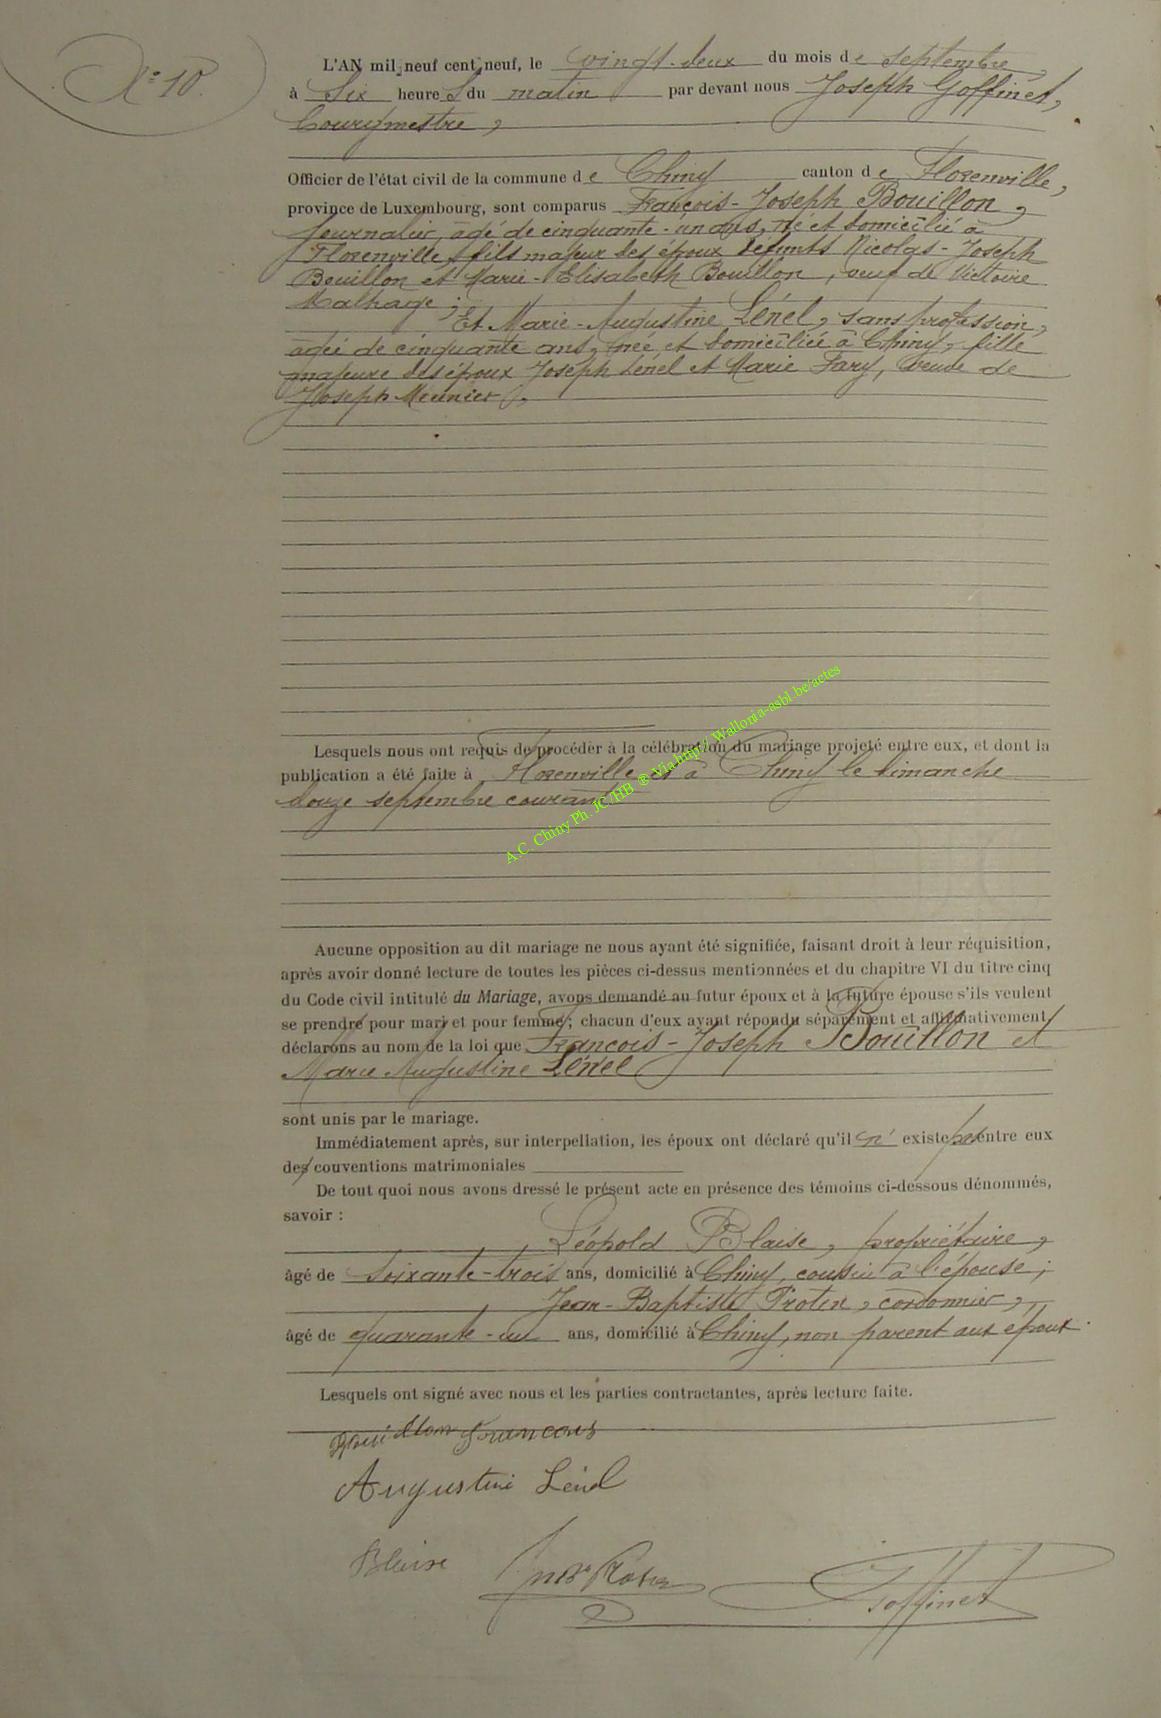 N° 10.
L'AN mil neuf cent neuf, le vingt-deux du mois de septembre,
à six heures du matin par devant nous Joseph Goffinet,
bourgmestre,
Officier de l'état civil de la commune de Chiny canton de Florenville,
province de Luxembourg, sont comparus François-Joseph Bouillon,
journalier, âgé de cinquante-un ans, né et domicilié à
Florenville, fils majeur des époux défunts Nicolas-Joseph
Bouillon et Marie-Elisabeth Bouillon, veuf de Victoire
Malhage;
Et Marie-Augustine Lénel, sans profession,
âgée de cinquante ans, née et domiciliée à Chiny, fille
majeure des époux Joseph Lénel et Marie Fary, veuve de
Joseph Meunier,
Lesquels nous ont requis de procéder à la célébration du mariage projeté entre eux, et dont la
publication a été faite à Florenville et à Chiny le dimanche
douze septembre courant
A.C. Chiny Ph. JC/HB ® Via http:/ Wallonia-asbl.be/actes
Aucune opposition au dit mariage ne nous ayant été signifiée, faisant droit à leur réquisition,
après avoir donné lecture de toutes les pièces ci-dessus mentionnées et du chapitre VI du titre cinq
du Code civil intitulé du Mariage, avons demandé au futur époux et à la future épouse s'ils veulent
se prendre pour mari et pour femme; chacun d'eux ayant répondu séparément et affirmativement,
déclarons au nom de la loi que François-Joseph Bouillon et
Marie Augustine Lénel
sont unis par le mariage.
Immédiatement après, sur interpellation, les époux ont déclaré qu'il n' existe pas entre eux
des conventions matrimoniales
De tout quoi nous avons dressé le présent acte en présence des témoins ci-dessous dénommés,
savoir :
Léopold Blaise, propriétaire,
âgé de soixante-trois ans, domicilié à Chiny, cousin à l'épouse;
Jean-Baptiste Protin, cordonnier,
âgé de quarante-un ans, domicilié à Chiny, non parent aux époux.
Lesquels ont signé avec nous et les parties contractantes, après lecture faite.
Bouillon Francois
Augustine Lénel
Blaise
Goffinet